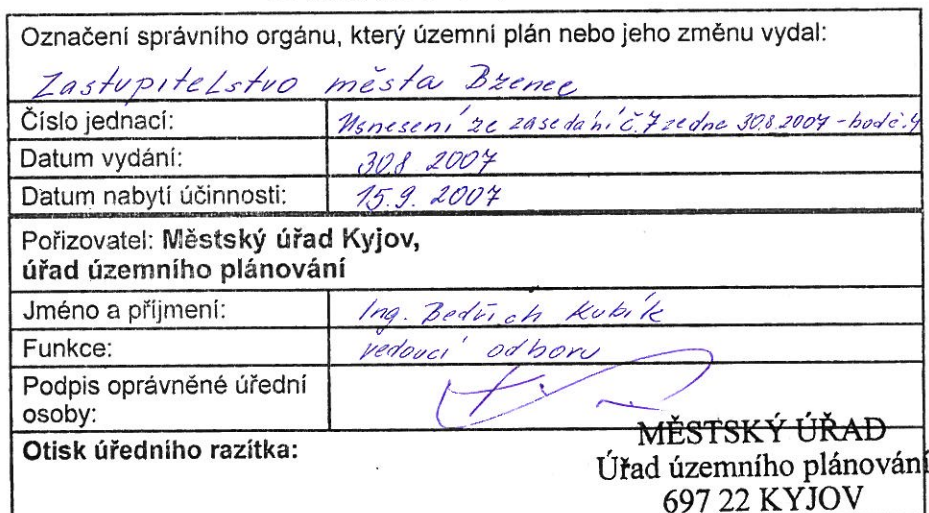 Označení správního orgánu, který územní plán nebo jeho změnu vydal:
Zastupitelstvo města Bzenec
Číslo jednací: Usnesení ze zasedání č.7 ze dne 30.8.2007 - bod č.4
Datum vydání: 30.8 2007
Datum nabytí účinnosti: 15.9. 2007
Pořizovatel: Městský úřad Kyjov,
úřad územního plánování
Jméno a příjmení: Ing. Bedřich Kubík
Funkce: vedoucí odboru
Podpis oprávněné úřední
osoby:
Otisk úředního razítka:
MĚSTSKÝ ÚŘAD
Úřad územního plánování
697 22 KYJOV